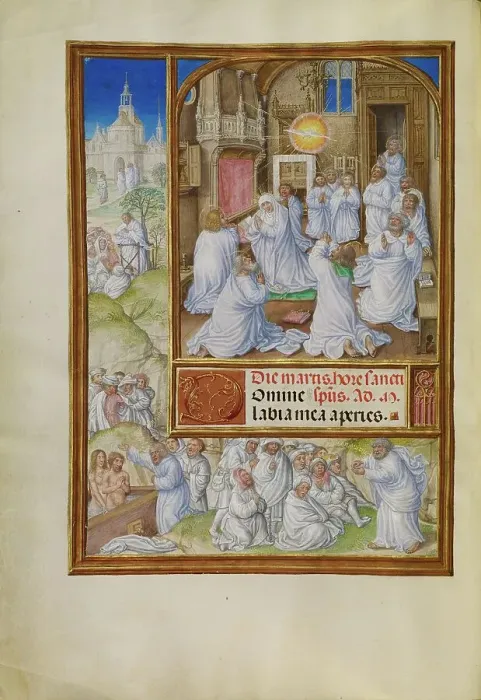 Die martis. hore sancti
Domine spūs. Ad. m̄.
labia mea aperies.